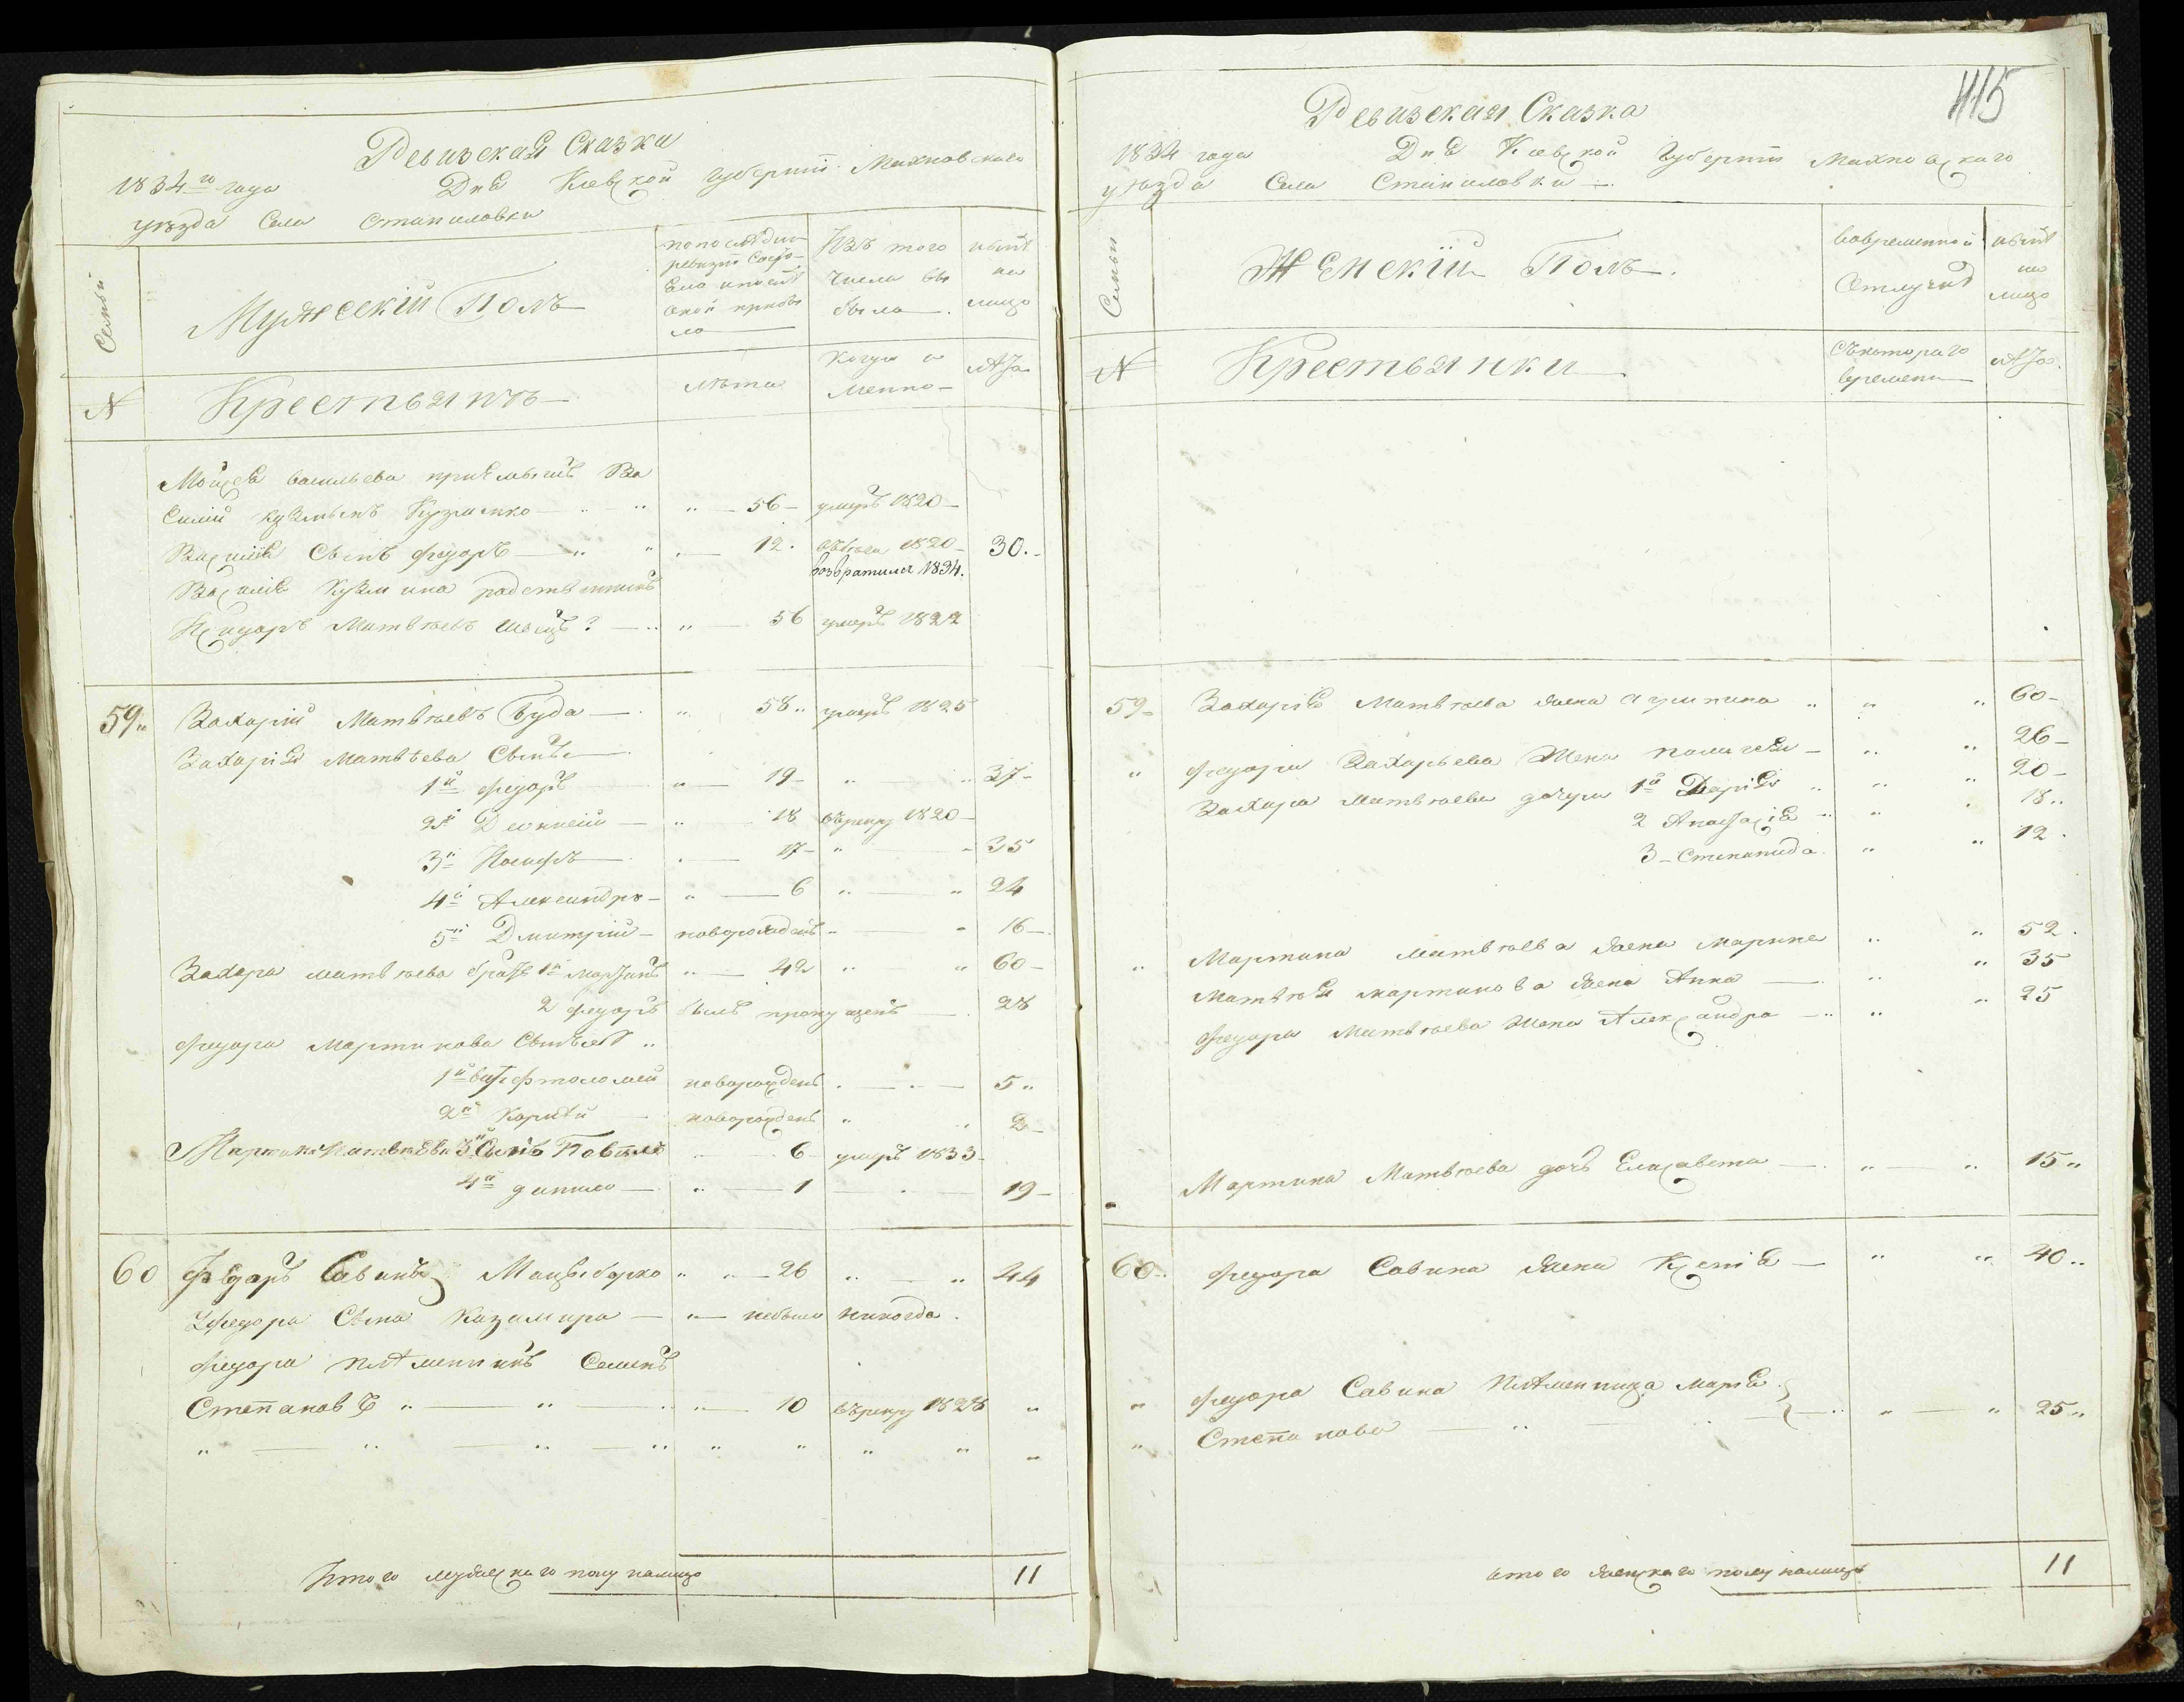 Ревизская Сказка
1834го года Дня Киевской Губернїи Махновского
уѣзда Села Станиловки
Семьи
Мужескій Полъ
по последней ревизіи состояло и после оной прибыло
Изъ того числа выбыло
нынѣ на лицо
N
Крестьянъ
лѣта
когда именно
лѣта
Мойсея васильева приемышъ Ва
силій Кузминъ Кузменко 56 умеръ 1820
Василія Сынъ Федоръ 12 въбега 1820 30
возвратился 1834.
Василія Кузмина родственникъ
Матвѣевъ 56 умеръ 1822
59 Захарій Матвѣевъ Буда 58 умеръ 1825
Захарія Матвѣева Сынъя
1й Федоръ 19 37
2й 18 върекру 1820
3й Иосифъ 17 35
4й Александръ 6 24
5й Дмитрій новорожденъ 16
Захара матвѣева братъя 1й Мартинъ 42 60
2 Федоръ былъ пропущенъ 28
Федора Мартинова Сынъея
1й варфтоломей новорожденъ 5
2й Корнѣй новорожденъ 2
Мартина Матвѣева 3й Сынъ Павелъ 6 умеръ 1833
4й данило 1 19
60 Федоръ Савинъ Мацыборко 26 44
Уфедора Сына Казимира небыло никогда.
Федора племенникъ Семенъ
Степановъ 10 върекру 1828
Итого мужескаго полу налицо 11
415
Ревизская Сказка
1834 года Дня Киевской Губернїи Махновскаго
уѣзда Села Станиловки
Семьи
Женскій Полъ.
вовременной Отлучкѣ
нынѣ на лицо
N
Крестьянки
Съкотораго времени
лѣта.
59 Захарія Матвѣева жена Агрипина 60
Федора Захарьева Жена Палагея 26
Захара матвѣева дочери 1я Дарія 20
2 Анастасія 18
3 Степанида 12
Мартина Матвѣева жена Марина 52
Матвѣя мартинова жена Анна 35
Федора Матвѣева жена Александра 25
Мартина Матвѣева дочь Елисавета 15
60 Федора Савина жена Ксенія 40
Федора Савина Племенница Марія
Степанова 25
итого женскаго полу налицо 11